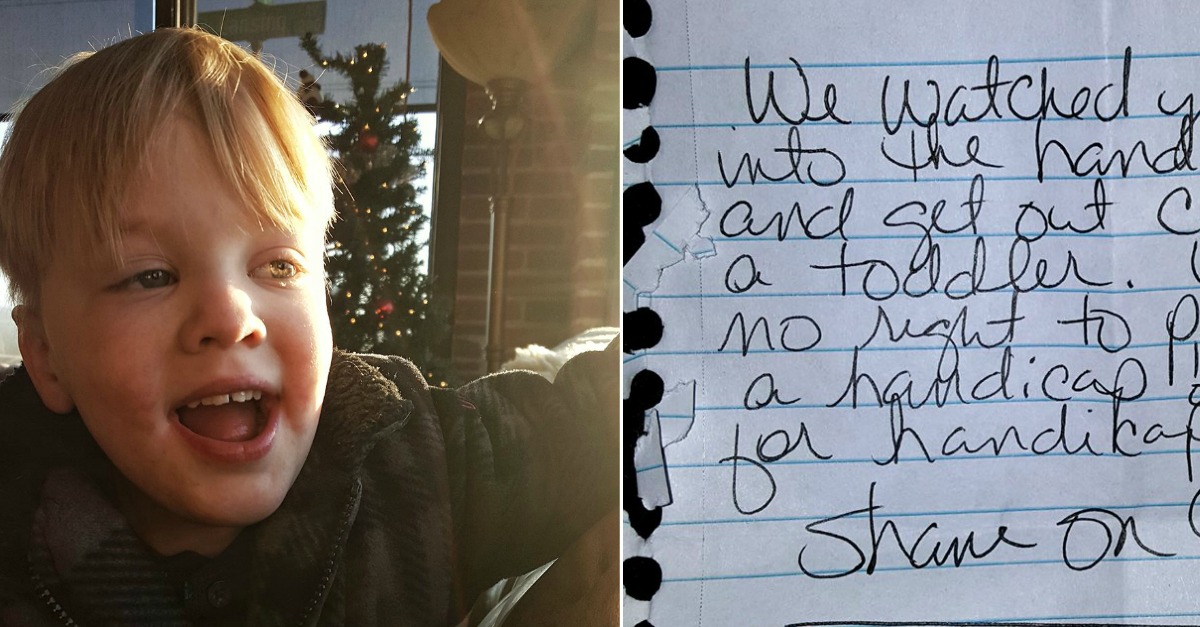 We Watched y
into the hand
and get out
a toddler.
no right to
a handicap
for handikap
Shame On